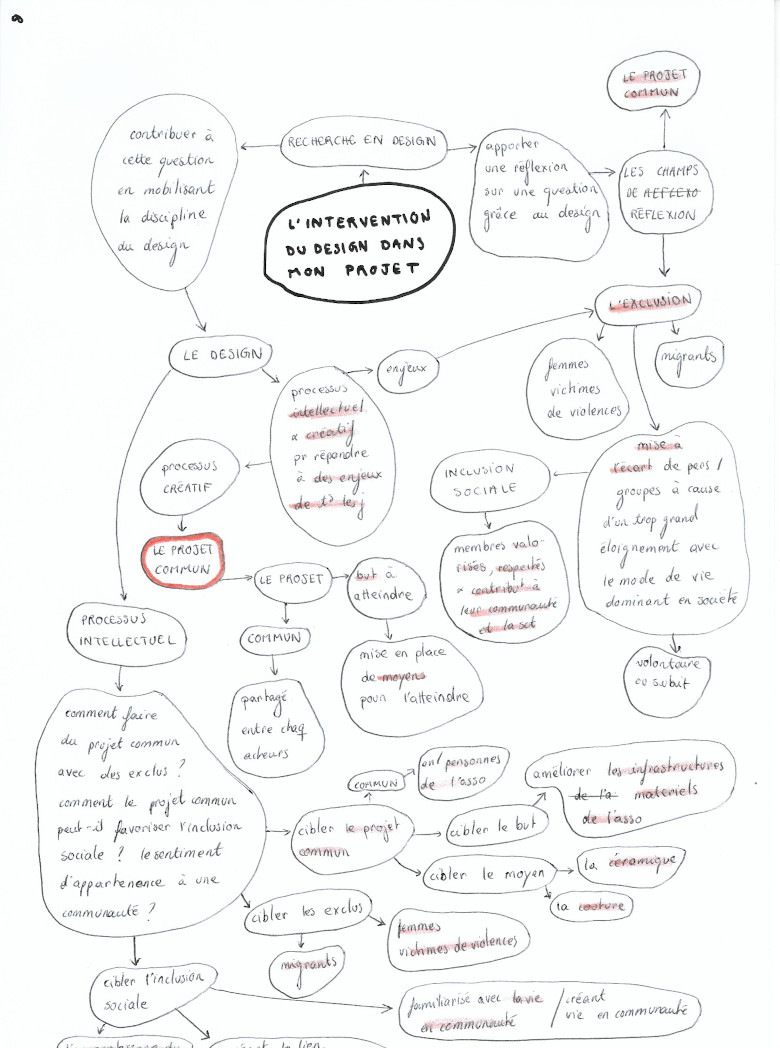 LE PROJET
COMMUN
contribuer à
cette question
en mobilisant
la discipline
du design
RECHERCHE EN DESIGN
apporter
une réflexion
sur une question
grâce au design
LES CHAMPS
DE REFLEXO
RÉFLEXION
L'INTERVENTION
DU DESIGN DANS
MON PROJET
L'EXCLUSION
LE DESIGN
enjeux
femmes
victimes
de violences
migrants
processus
intellectuel
& créatif
pr répondre
à des enjeux
de
processus
CRÉATIF
INCLUSION
SOCIALE
mise à
l'écart de pers /
groupes à cause
d'un trop grand
éloignement avec
le mode de vie
dominant en société
LE PROJET
COMMUN
LE PROJET
but à
atteindre
membres valo-
risés respectés
& contribut à
leur communauté
et la sct
PROCESSUS
INTELLECTUEL
COMMUN
mise en place
de moyens
pour l'atteindre
volontaire
ou subit
partagé
entre chaq
acteurs
comment faire
du projet commun
avec des exclus ?
comment le projet commun
peut-il favoriser l'inclusion
sociale ? le sentiment
d'appartenance à une
communauté ?
COMMUN
ent/personnes
de l'asso
améliorer les infrastructures
de la matériels
de l'asso
cibler le projet
commun
cibler le but
cibler le moyen
la céramique
la couture
cibler les exclus
femmes
victimes de violences
migrants
cibler l'inclusion
sociale
familiarisé avec la vie
en communauté
/ créant
vie en communauté
le lien